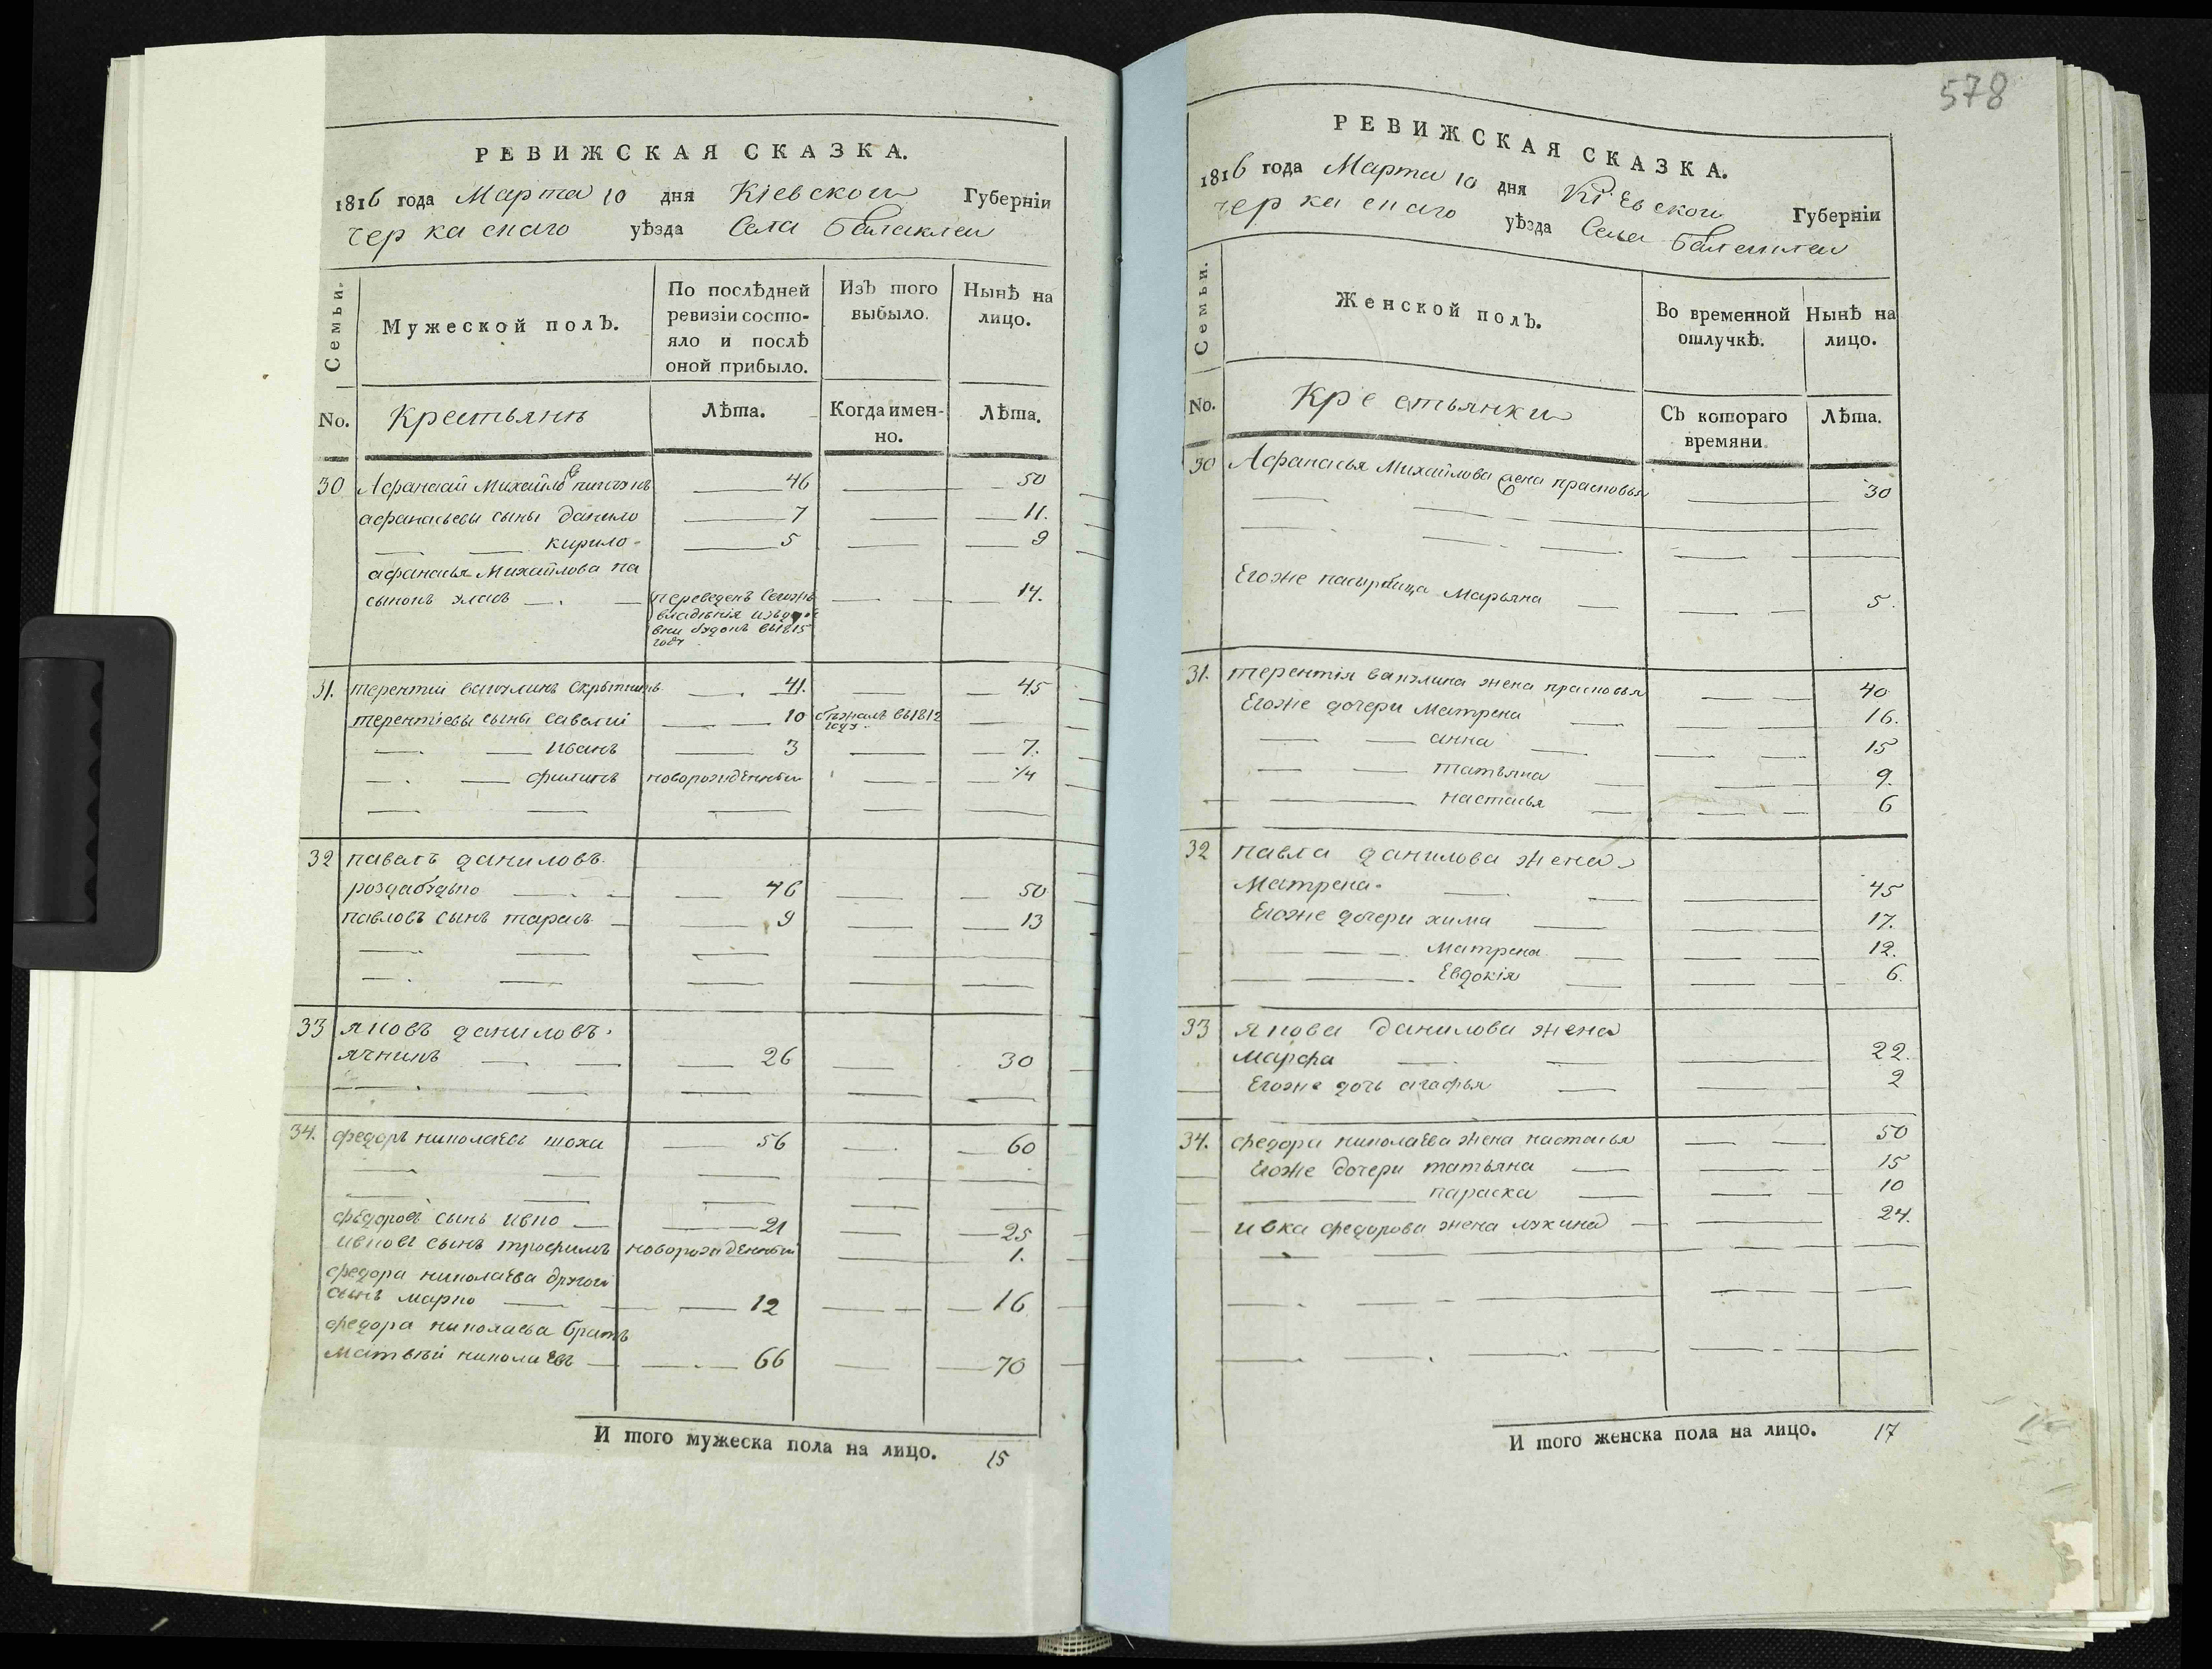 578
РЕВИЖСКАЯ СКАЗКА.
1816 года Марта 10 дня Кіевской Губерніи
Черкаскаго уѣзда Села Балаклеи
Семьи.
Мужеской полъ.
По послѣдней ревизіи состо-
яло и послѣ
оной прибыло.
Изъ того
выбыло.
Нынѣ на
лицо.
No.
Крестьянѣ
Лѣта.
Когда имен-
но.
Лѣта.
30 Афанасій Михайловъ 46 50
афанасьевы сыны данило 7 11.
кирило 5 9
афанасья Михайлова па
сынокъ власъ переведенъ 14.
владѣнія
в1815
году
31. терентій 41. 45
терентіевы сыны савелий 10 бѣжалъ в1812 году
иванъ 3 7.
филипъ новорожденный 1/4
32 павелъ даниловъ
46 50
павловъ сынъ тарасъ 9 13
33 яковъ даниловъ
26 30
34. федоръ николаевъ шоха 56 60
федоровъ сынъ ивко 21 25
ивковъ сынъ трофимъ новорожденный 1.
федора николаева другой
сынъ марко 12 16
федора николаева братъ
Матвѣй николаевъ 66 70
И того мужеска пола на лицо. 15
РЕВИЖСКАЯ СКАЗКА.
1816 года Марта 10 дня Кіевской Губерніи
Черкаскаго уѣзда Села Балаклеи
Семьи.
Женской полъ.
Во временной
отлучкѣ.
Нынѣ на
лицо.
No.
Крестьянки
Съ котораго
времяни
Лѣта.
30 Афанасья Михайлова жена прасковья 30
Егоже Марьяна 5.
31. терентія жена прасковья 40
Егоже дочери Матрена 16.
анна 15
татьяна 9.
настасья 6
32 павла данилова жена
Матрена 45
Егоже дочери хима 17.
Матрена 12.
Евдокія 6.
33 якова данилова жена
Марфа 22.
Егоже дочь агафья 2
34. федора николаева жена настасья 50
Егоже дочери татьяна 15
параска 10
ивка федорова жена 24.
И того женска пола на лицо. 17